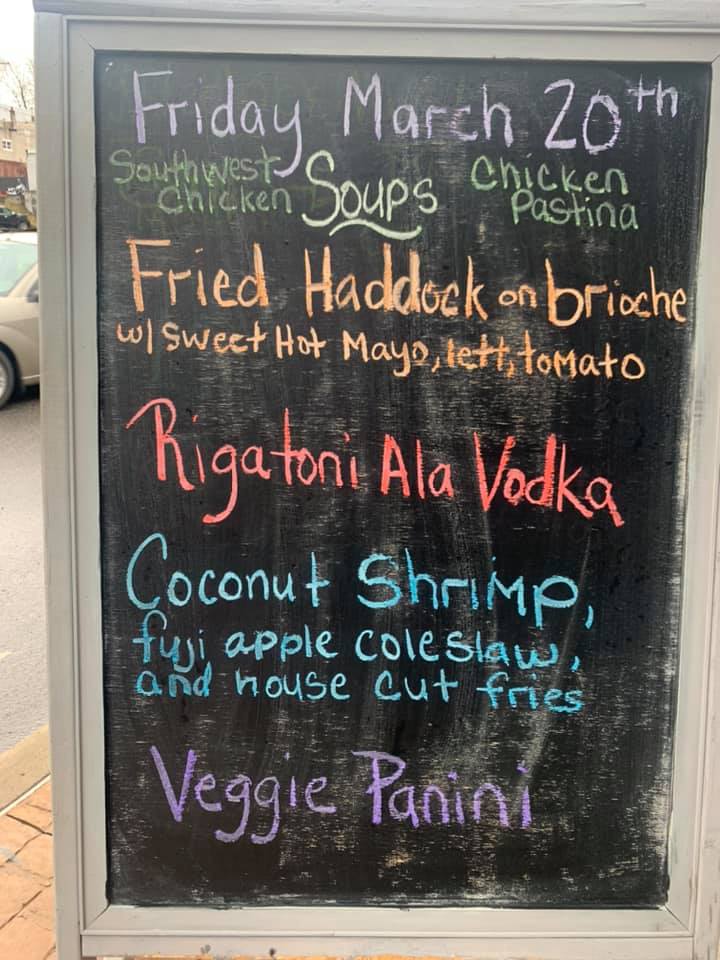 Friday March 20th
Southwest Chicken Soups Chicken Pastina
Fried Haddock on brioche
w/ sweet Hot Mayo, lett, tomato
Rigatoni Ala Vodka
Coconut Shrimp,
fuji apple coleslaw,
and house cut fries
Veggie Panini